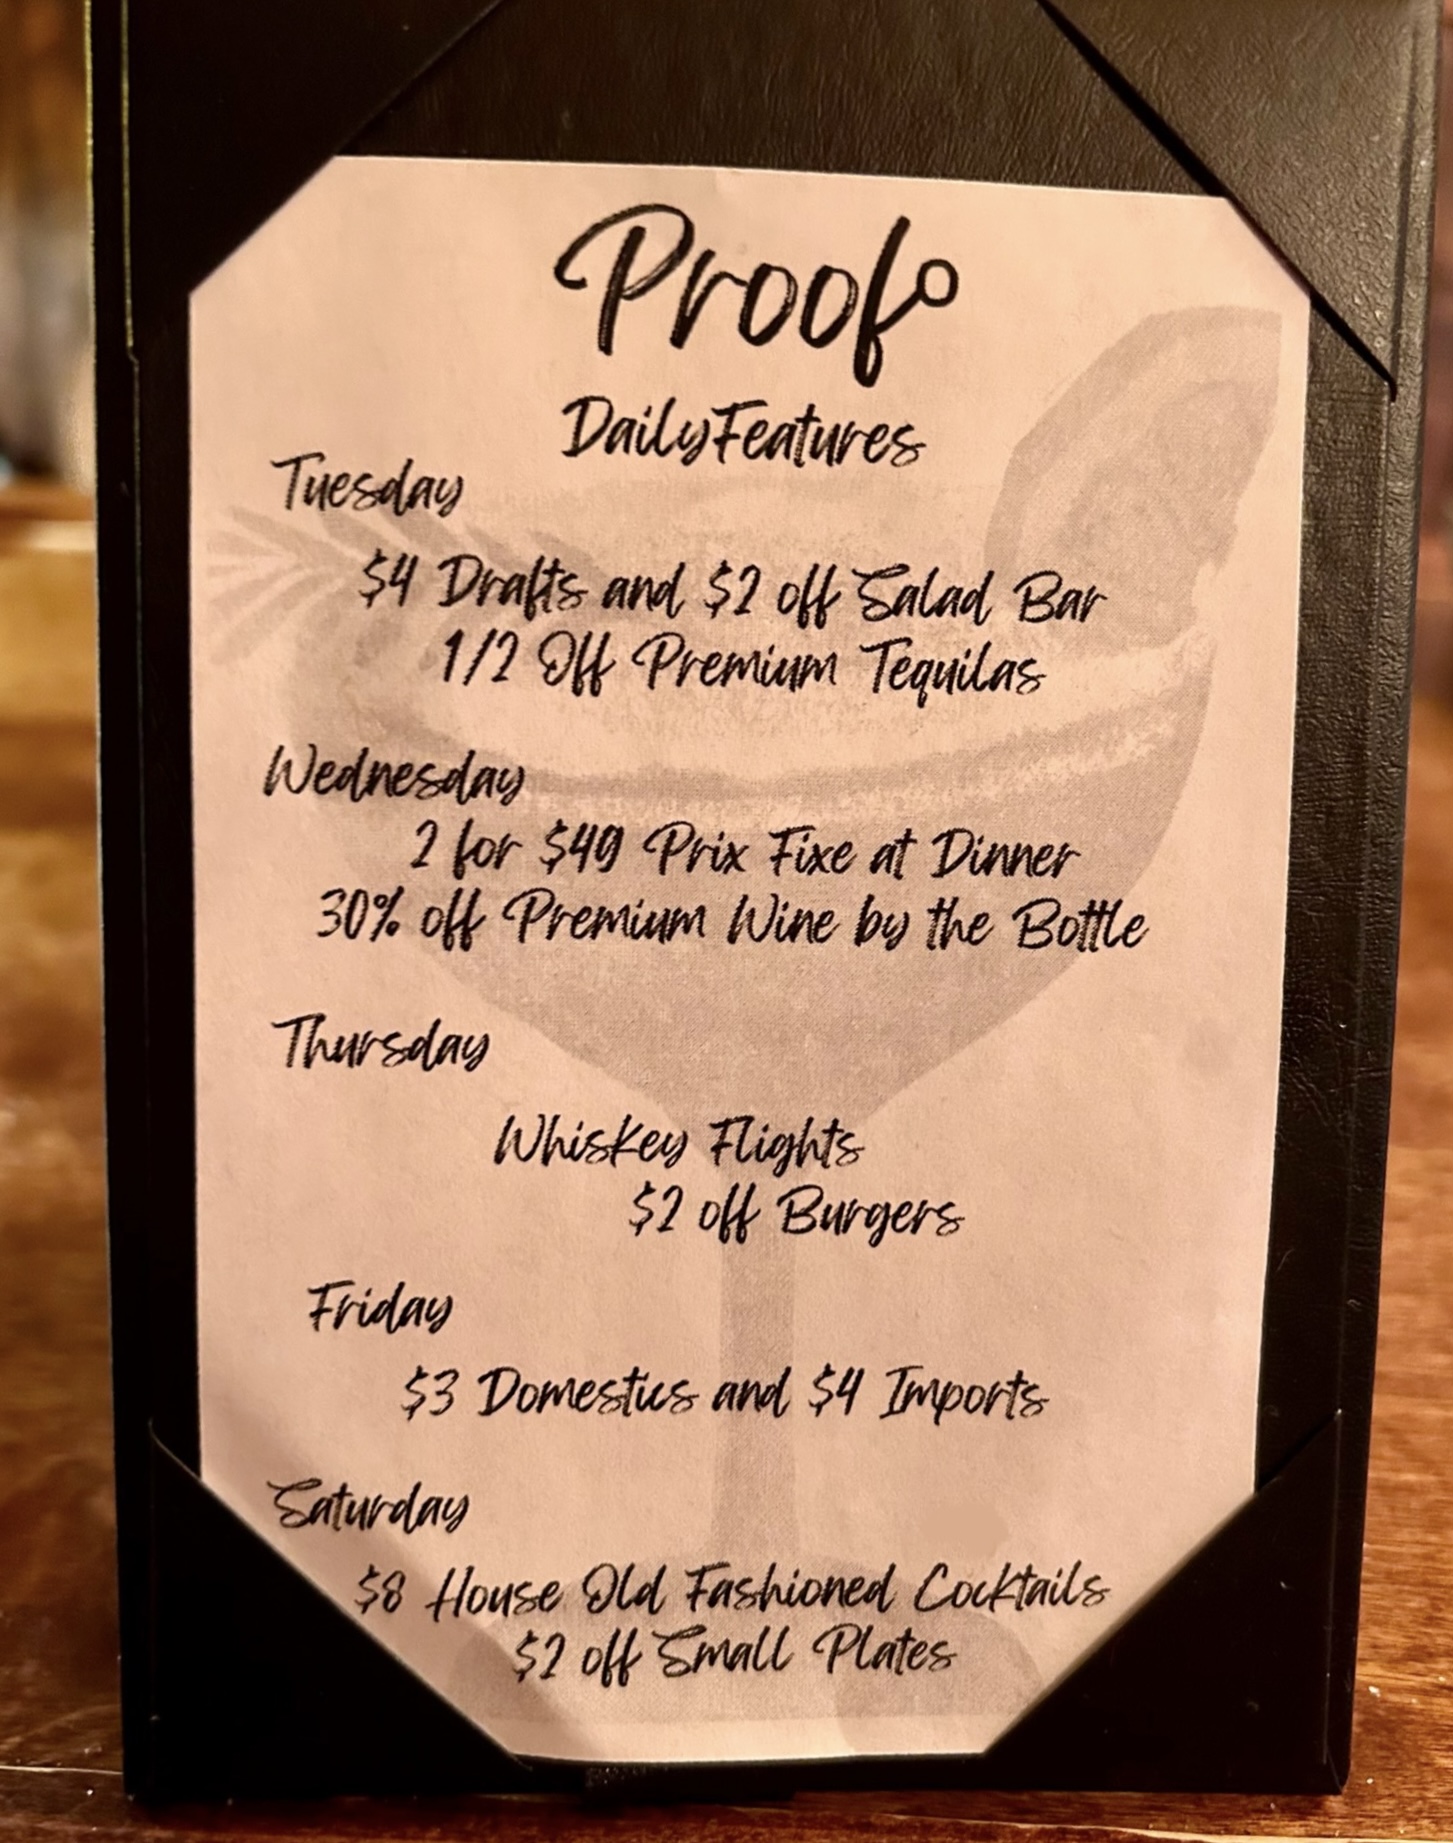 Proof°
Daily Features
Tuesday
$4 Drafts and $2 off Salad Bar
1/2 Off Premium Tequilas
Wednesday
2 for $49 Prix Fixe at Dinner
30% off Premium Wine by the Bottle
Thursday
Whiskey Flights
$2 off Burgers
Friday
$3 Domestics and $4 Imports
Saturday
$8 House Old Fashioned Cocktails
$2 off Small Plates